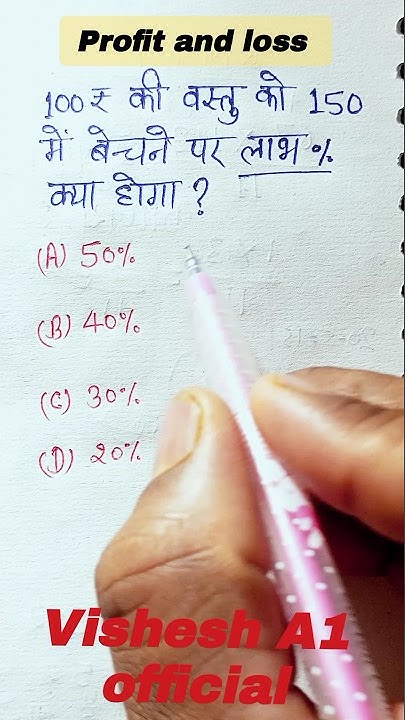 Profit and loss
100₹ की वस्तु को 150
में बेचने पर लाभ %
क्या होगा ?
(A) 50%
(B) 40%
(C) 30%
(D) 20%
Vishesh A1
official